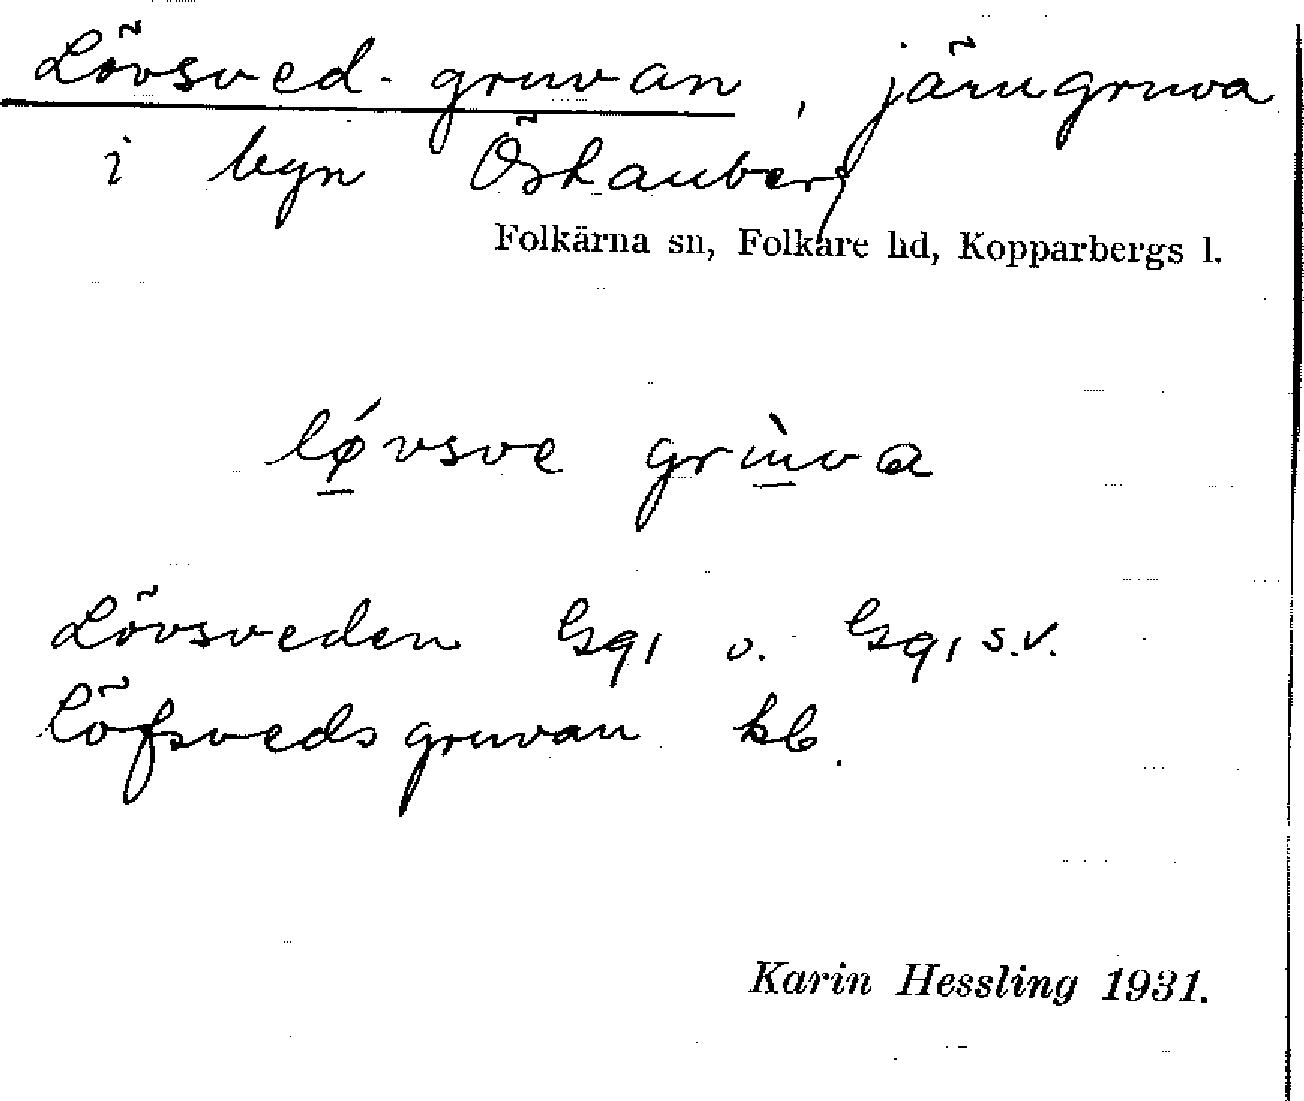 Lövsved-gruvan, järngruva
i byn Öshanberg
Folkärna sn, Folkare hd, Kopparbergs l.
lǿvsve grùva
Lövsveden Gq1 o. Gq1 s.v.
Löfsvedsgruvan kb.
Karin Hessling 1931.